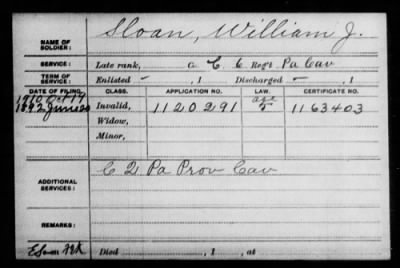 NAME OF SOLDIER: Sloan, William J.
SERVICE: Late rank, C 6 Regt. Pa Cav
TERM OF SERVICE: Enlisted - , 1 Discharged - , 1
DATE OF FILING. CLASS. APPLICATION NO. LAW. CERTIFICATE NO.
1910 Oct 19 age
1892 June 20 Invalid, 1120291 5 1163403
Widow,
Minor,
ADDITIONAL SERVICES: C 2 Pa Prov Cav
REMARKS:
Died , 1 , at